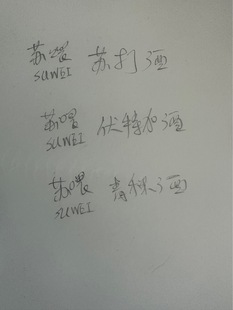 苏喂 苏打酒
SUWEI
苏喂 伏特加酒
SUWEI
苏喂 青稞酒
SUWEI